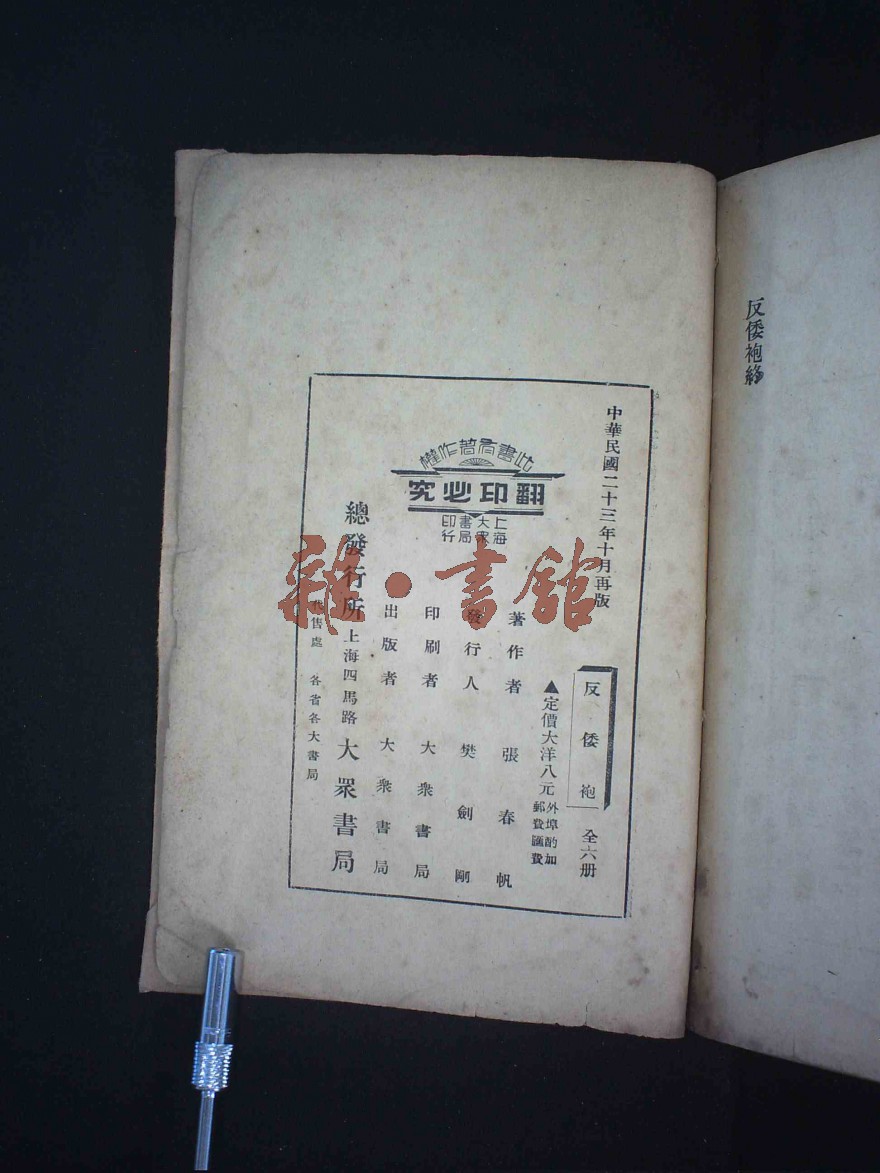 反倭袍終
中華民國二十三年十月再版
反倭袍
全六册
▲定價大洋八元
外埠酌加
郵費匯費
此書有著作權
翻印必究
上海
大眾
書局
印行
著作者 張春帆
發行人 樊劍剛
印刷者 大衆書局
出版者 大衆書局
總發行所 上海四馬路 大眾書局
代售處 各省各大書局
雜·書館